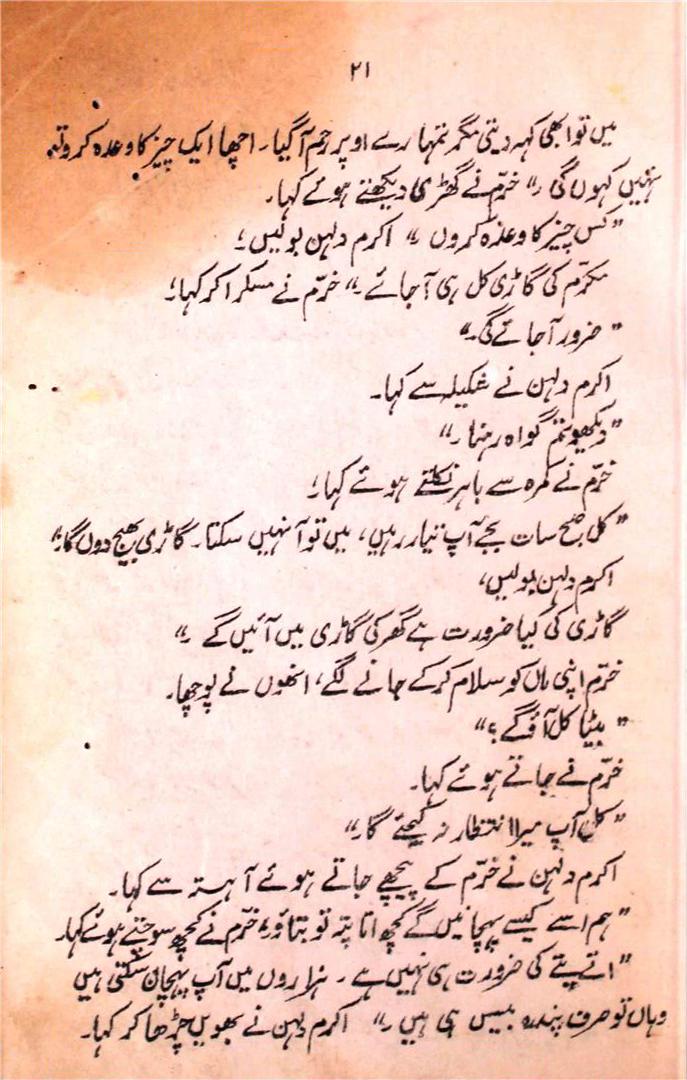 ۲۱
میں تو ابھی کہہ دیتی مگر تمہارے اوپر رحم آ گیا۔ اچھا ایک چیز کا وعدہ کرو تو
نہیں کہوں گی۔“ خرّم نے گھڑی دیکھتے ہوئے کہا۔
”کس چیز کا وعدہ کروں۔“ اکرم دلہن بولیں؛
مکرّم کی گاڑی کل ہی آ جائے۔“ خرّم نے مسکرا کر کہا؛
”ضرور آ جائے گی۔“
اکرم دلہن نے شکیلہ سے کہا۔
”دیکھو تم گواہ رہنا۔“
خرّم نے کمرہ سے باہر نکلتے ہوئے کہا؛
”کل صبح سات بجے آپ تیار رہیں، میں تو آ نہیں سکتا۔ گاڑی بھیج دوں گا۔“
اکرم دلہن بولیں،
گاڑی کی کیا ضرورت ہے گھر کی گاڑی میں آئیں گے۔“
خرّم اپنی ماں کو سلام کر کے جانے لگے، انھوں نے پوچھا۔
”بیٹا کل آؤ گے؟“
خرّم نے جاتے ہوئے کہا۔
”کل آپ میرا انتظار نہ کیجئے گا۔“
اکرم دلہن نے خرّم کے پیچھے جاتے ہوئے آہستہ سے کہا۔
”ہم اسے کیسے پہچانیں گے کچھ اتا پتہ تو بتاؤ۔“ خرّم نے کچھ سوچتے ہوئے کہا۔
”اتے پتے کی ضرورت ہی نہیں ہے۔ ہزاروں میں آپ پہچان سکتی ہیں
وہاں تو صرف پندرہ بیس ہی ہیں۔“ اکرم دلہن نے بھویں چڑھا کر کہا۔